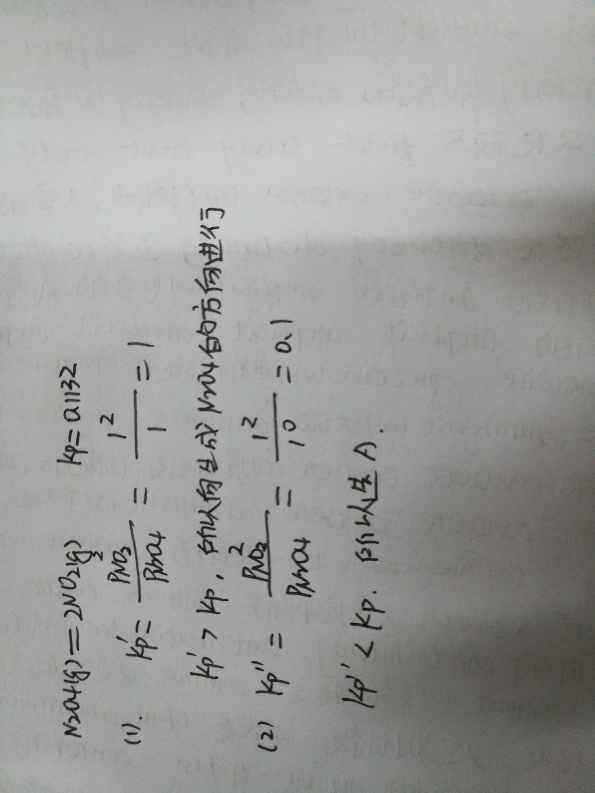 N2O4(g)=2NO2(g) Kp=0.1132
(1). Kp'=P²NO2/PN2O4=1²/1=1
Kp'>Kp, 所以向生成N2O4的方向进行
(2) Kp''=P²NO2/PN2O4=1²/10=0.1
Kp'<Kp. 所以选A.